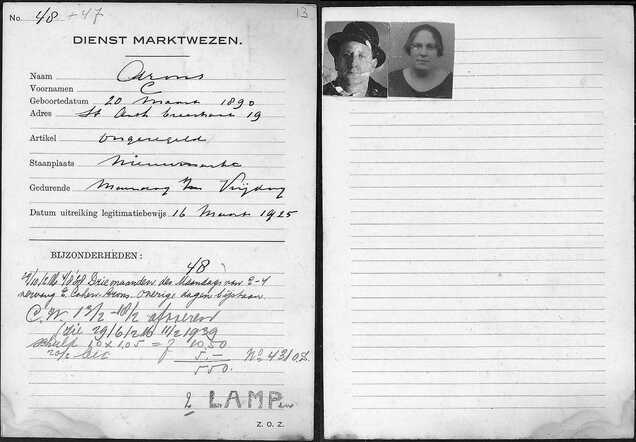 No. 48 - 47 13
DIENST MARKTWEZEN.
Naam Arons
Voornamen C
Geboortedatum 20 Maart 1890
Adres St Anth breestraat 19
Artikel ongeregeld
Staanplaats Nieuwmarkt
Gedurende Maandag t/m Vrijdag
Datum uitreiking legitimatiebewijs 16 Maart 1925
BIJZONDERHEDEN:
48
Drie maanden des Maandags van 2-4
verving E. Cohen-Arons. Overige dagen bijstaan.
C.W. 1 2/2 - 18/2
29/6/26 11/2 1939
10 x 1,05 = f 10.50
20/2 f 5.- No 4310.Z.
5.50.
2 LAMP
Z. O. Z.